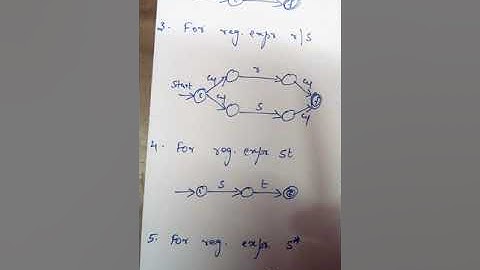 3. For reg. expr r/s
r
Start
ϵ
ϵ
i
f
ϵ
s
ϵ
4. For reg. expr st
i
s
t
f
5. For reg. expr s*